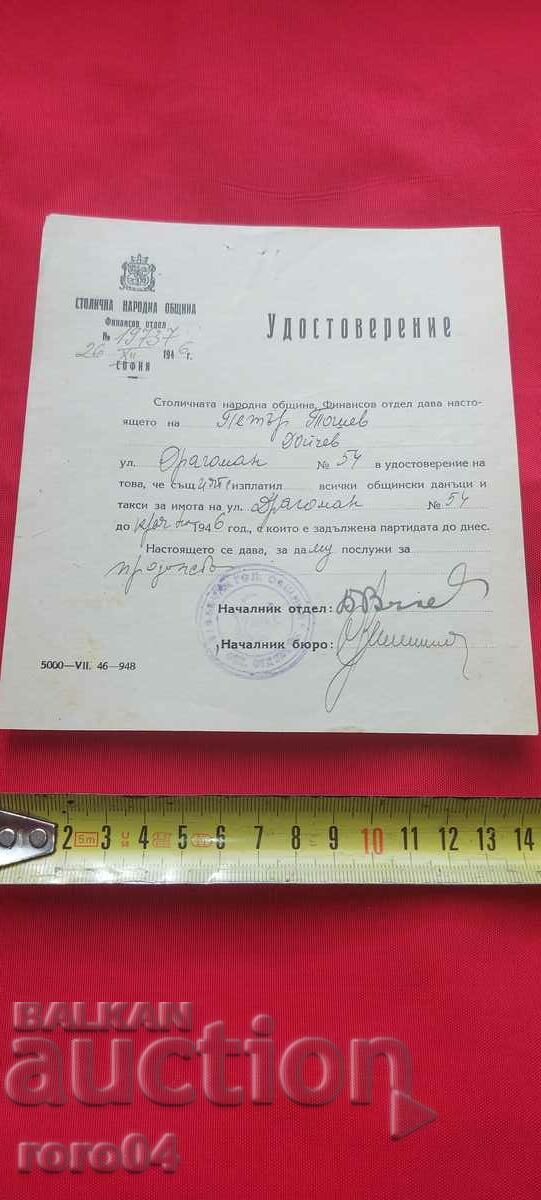 СТОЛИЧНА НАРОДНА ОБЩИНА
Финансов отдел
№ 19737
26 XII 1946 г.
СОФИЯ
Удостоверение
Столичната народна община, Финансов отдел дава насто-
ящето на Петър Тошев
Дойчев
ул. Драгоман № 54 в удостоверение на
това, че същ изплатил всички общински данъци и
такси за имота на ул. Драгоман № 54
до 1946 год., с които е задължена партидата до днес.
Настоящето се дава, за да му послужи за
Началник отдел:
Началник бюро:
5000—VII. 46—948
2 5m 3 4 5 6 7 8 9 10 11 12 13 14
BALKAN
auction
roro04